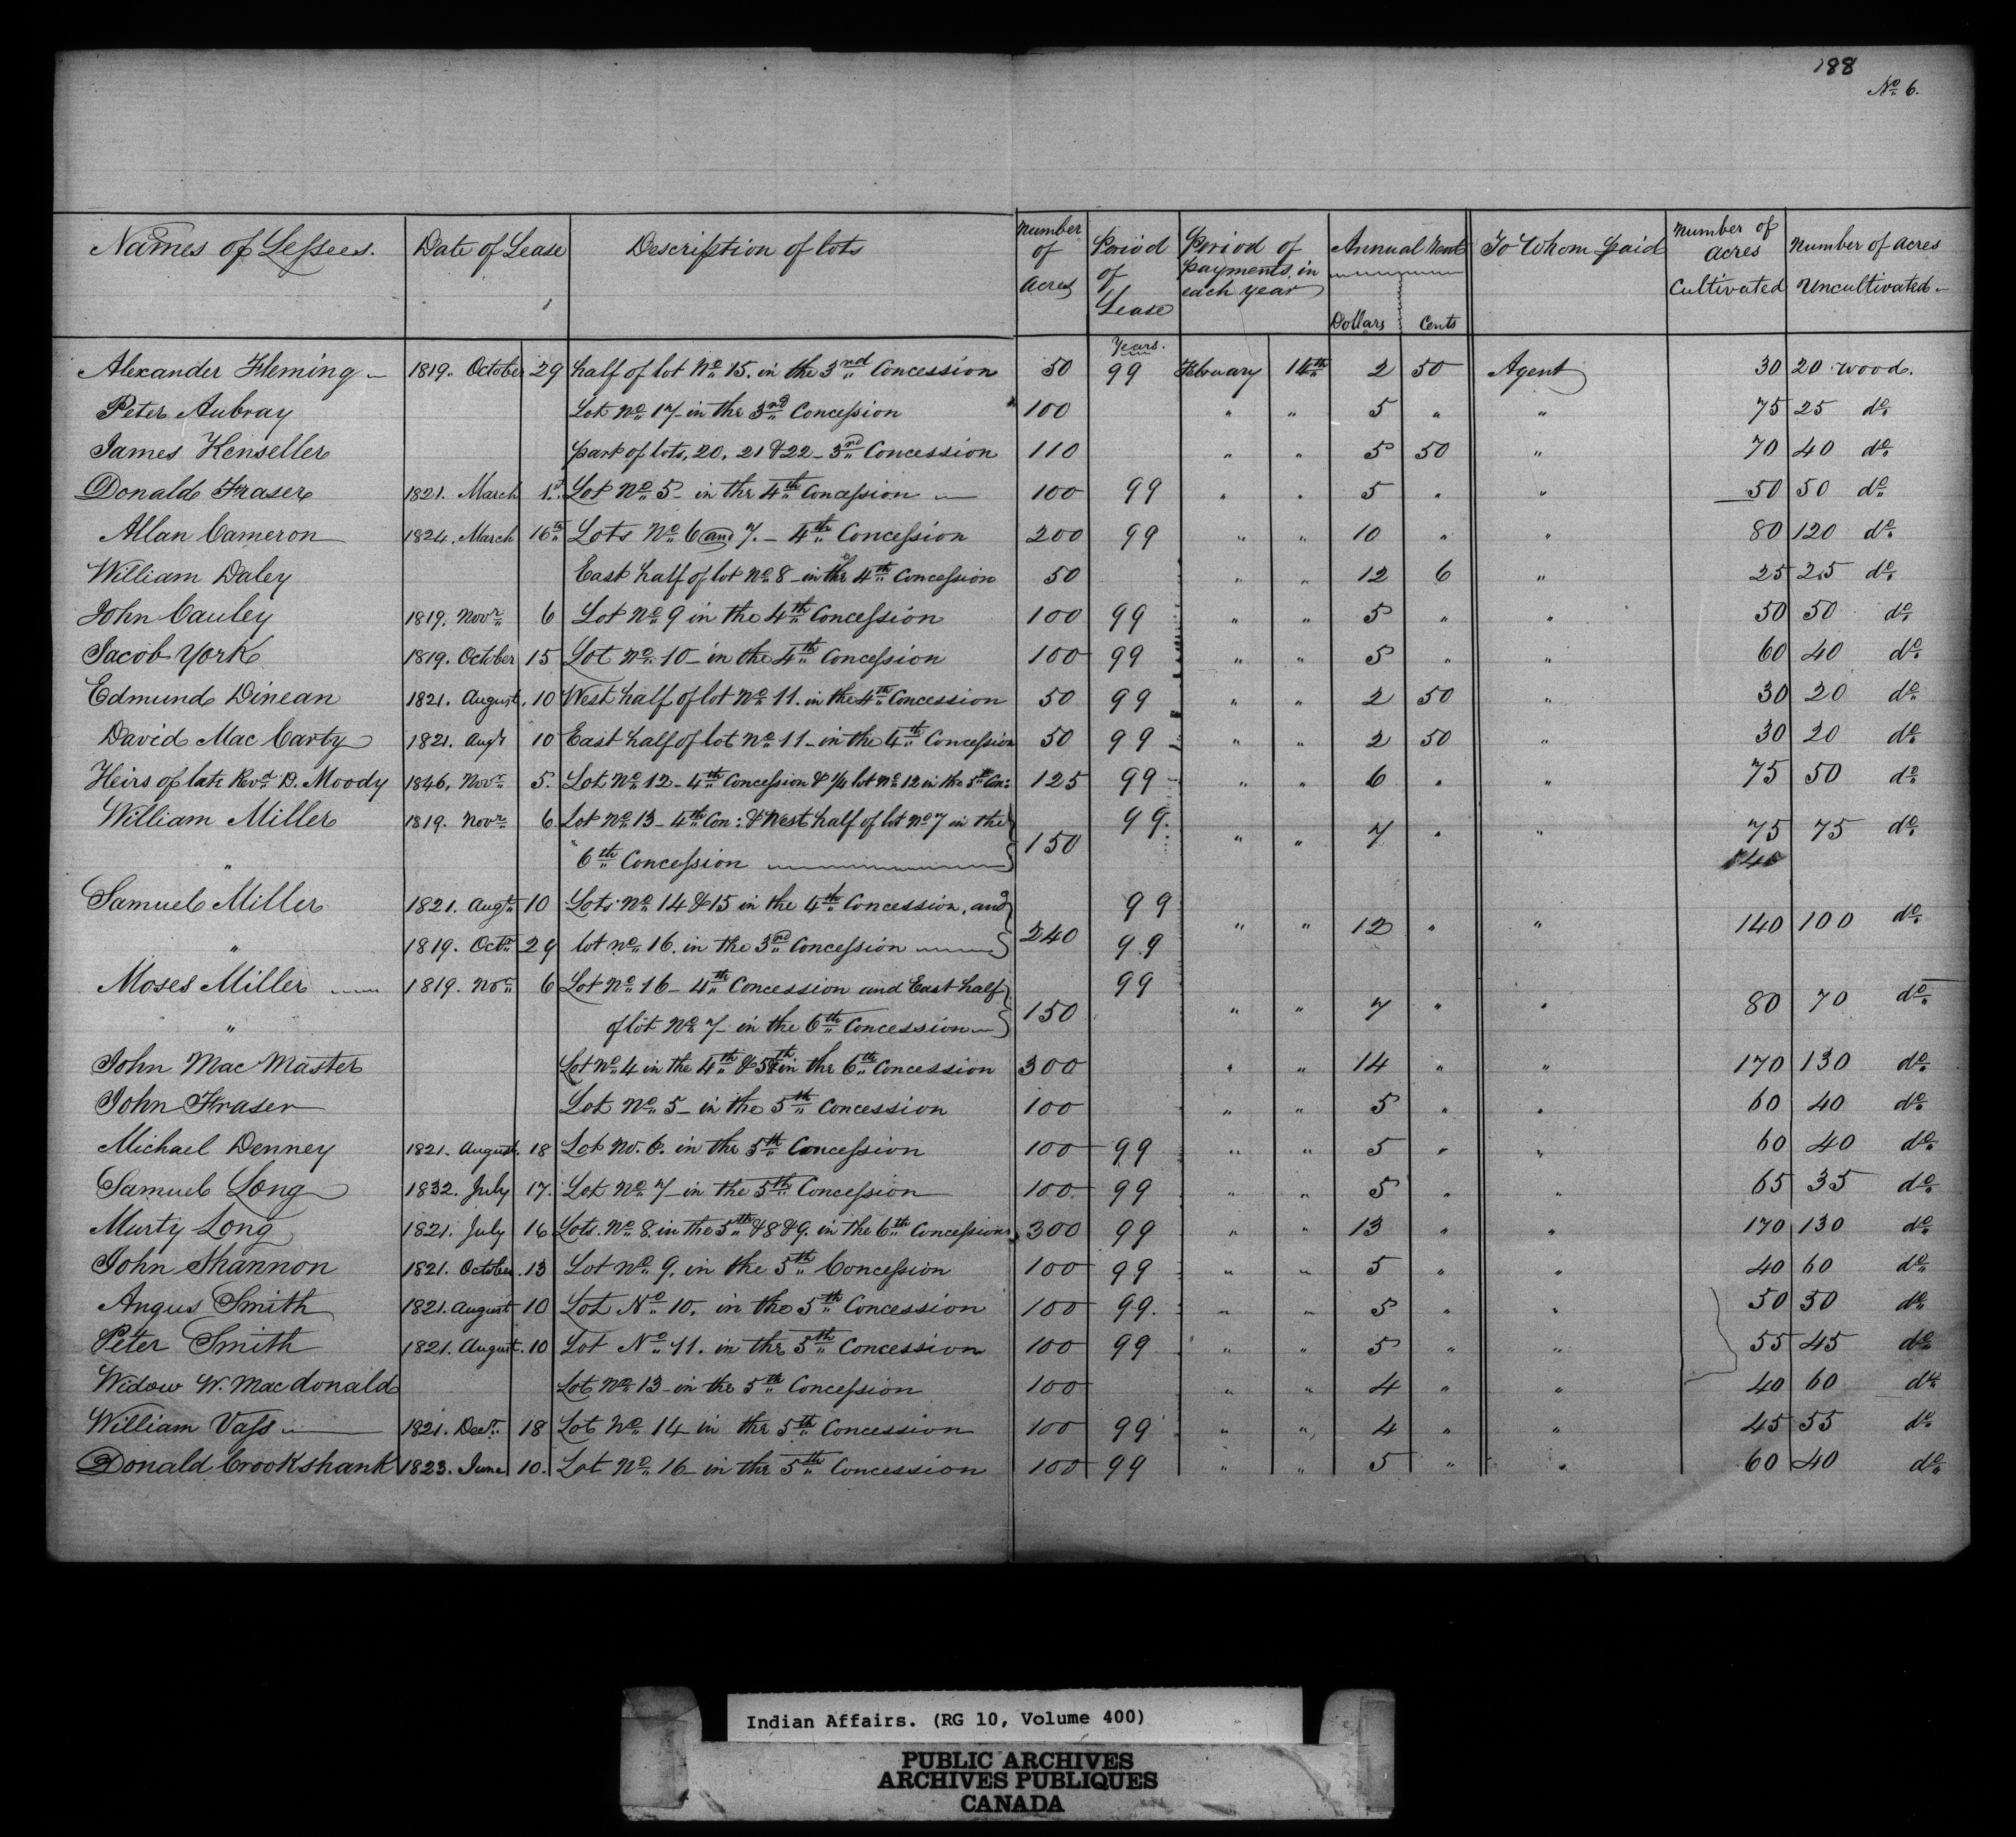 188
No. 6.
Names of Lessees. Date of Lease Description of lots Number of Acres Period of Lease Period of payments in each year Annual Rent Dollars Cents To Whom paid Number of Acres Cultivated Number of Acres Uncultivated
Years.
Alexander Fleming 1819. October 29 half of lot No. 15. in the 3rd Concession 50 99 February 14th 2 50 Agent 30 20 wood.
Peter Aubray Lot No. 17 in the 3rd Concession 100 " " 5 " " 75 25 do.
James Kenseller part of lots, 20, 21 & 22 - 3rd Concession 110 " " 5 50 " 70 40 do.
Donald Fraser 1821. March 1st. Lot No. 5 - in the 4th Concession 100 99 " " 5 " " 50 50 do.
Allan Cameron 1824. March 16th Lots No. 6 and 7. - 4th Concession 200 99 " " 10 " " 80 120 do.
William Daley East half of lot No. 8 - in the 4th Concession 50 " " 12 6 " 25 25 do.
John Cauley 1819. Novr. 6 Lot No. 9 in the 4th Concession 100 99 " " 5 " " 50 50 do.
Jacob York 1819. October 15 Lot No. 10 - in the 4th Concession 100 99 " " 5 " " 60 40 do.
Edmund Dinean 1821. August. 10 West half of lot No. 11. in the 4th Concession 50 99 " " 2 50 " 30 20 do.
David Mac Carty 1821. Augt 10 East half of lot No. 11 - in the 4th Concession 50 99 " " 2 50 " 30 20 do.
Heirs of late Revd. D. Moody 1846. Novr. 5. Lot No. 12 - 4th Concession & 1/4 lot No. 12 in the 5th Con: 125 99 " " 6 " " 75 50 do.
William Miller 1819. Novr. 6 Lot No. 13 - 4th Con: & West half of lot No. 7 in the 99.
" 6th Concession 150 " " 7 " " 75 75 do.
Samuel Miller 1821. Augt. 10 Lots No. 14 & 15 in the 4th Concession, and 99
" 1819. Octr. 29 lot No. 16. in the 3rd Concession 240 99 " " 12 " " 140 100 do.
Moses Miller 1819. Nov. 6 Lot No. 16 - 4th Concession and East half 99
" of lot No. 7 - in the 6th Concession 150 " " 7 " " 80 70 do.
John Mac Master Lot No. 4 in the 4th & 5th in the 6th Concession 300 " " 14 " " 170 130 do.
John Fraser Lot No. 5 - in the 5th Concession 100 " " 5 " " 60 40 do.
Michael Denney 1821. August. 18 Lot No. 6. in the 5th Concession 100 99 " " 5 " " 60 40 do.
Samuel Long 1832. July 17. Lot No. 7 - in the 5th Concession 100 99 " " 5 " " 65 35 do.
Murty Long 1821. July 16 Lots. No. 8. in the 5th & 8 & 9. in the 6th Concessions 300 99 " " 13 " " 170 130 do.
John Shannon 1821. October. 13 Lot No. 9. in the 5th Concession 100 99 " " 5 " " 40 60 do.
Angus Smith 1821. August 10 Lot No. 10. in the 5th Concession 100 99. " " 5 " " 50 50 do.
Peter Smith 1821. August. 10 Lot No. 11. in the 5th Concession 100 99 " " 5 " " 55 45 do.
Widow W. Macdonald Lot No. 13 - in the 5th Concession 100 " " 4 " " 40 60 do.
William Vass 1821. Decr. 18 Lot No. 14 - in the 5th Concession 100 99 " " 4 " " 45 55 do.
Donald Crookshank 1823. June 10. Lot No. 16 - in the 5th Concession 100 99 " " 5 " " 60 40 do.
Indian Affairs. (RG 10, Volume 400)
PUBLIC ARCHIVES
ARCHIVES PUBLIQUES
CANADA